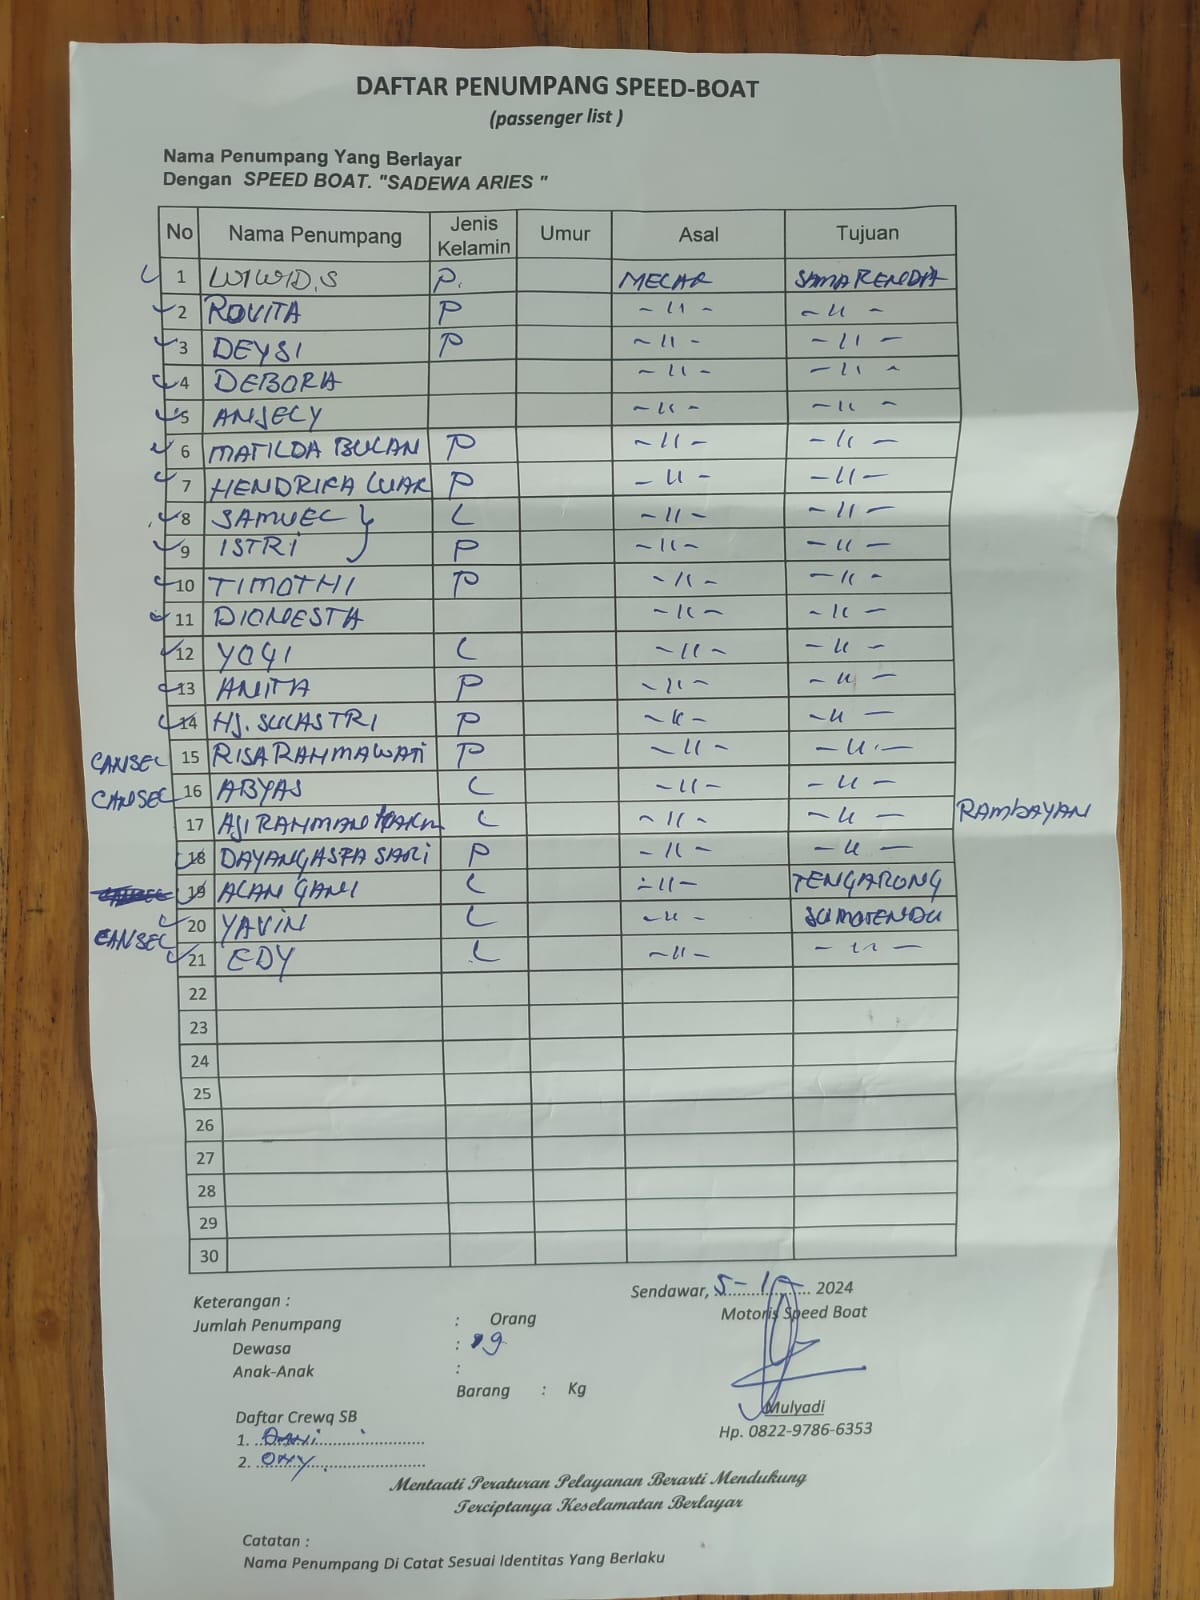 DAFTAR PENUMPANG SPEED-BOAT
(passenger list )
Nama Penumpang Yang Berlayar
Dengan SPEED BOAT. "SADEWA ARIES "
No Nama Penumpang Jenis Kelamin Umur Asal Tujuan
1 WIWID.S P. MELAK SAMARENDA
2 ROVITA P -11- -11-
3 DEYSI P -11- -11-
4 DEBORA -11- -11-
5 ANJELY -11- -11-
6 MATILDA BULAN P -11- -11-
7 HENDRIKA LUAK P -11- -11-
8 SAMUEL L -11- -11-
9 ISTRI P -11- -11-
10 TIMOTHI P -11- -11-
11 DIONESTA -11- -11-
12 YOGI L -11- -11-
13 ANITA P -11- -11-
14 HJ. SULASTRI P -11- -11-
CANSEL 15 RISA RAHMAWATI P -11- -11-
CANSEL 16 ABYAS L -11- -11-
17 AJI RAHMAN L -11- -11- RAMBAYAN
18 DAYANG ASFA SARI P -11- -11-
19 ALAN GANI L -11- TENGARONG
20 YAVIN L -11-
CANSEL 21 EDY L -11- -11-
22
23
24
25
26
27
28
29
30
Keterangan :
Jumlah Penumpang : Orang
Dewasa : 19
Anak-Anak :
Barang : Kg
Sendawar, 5-1 2024
Motoris Speed Boat
Mulyadi
Hp. 0822-9786-6353
Daftar Crewq SB
1. DANI
2. ONY.
Mentaati Peraturan Pelayanan Berarti Mendukung
Terciptanya Keselamatan Berlayar
Catatan :
Nama Penumpang Di Catat Sesuai Identitas Yang Berlaku